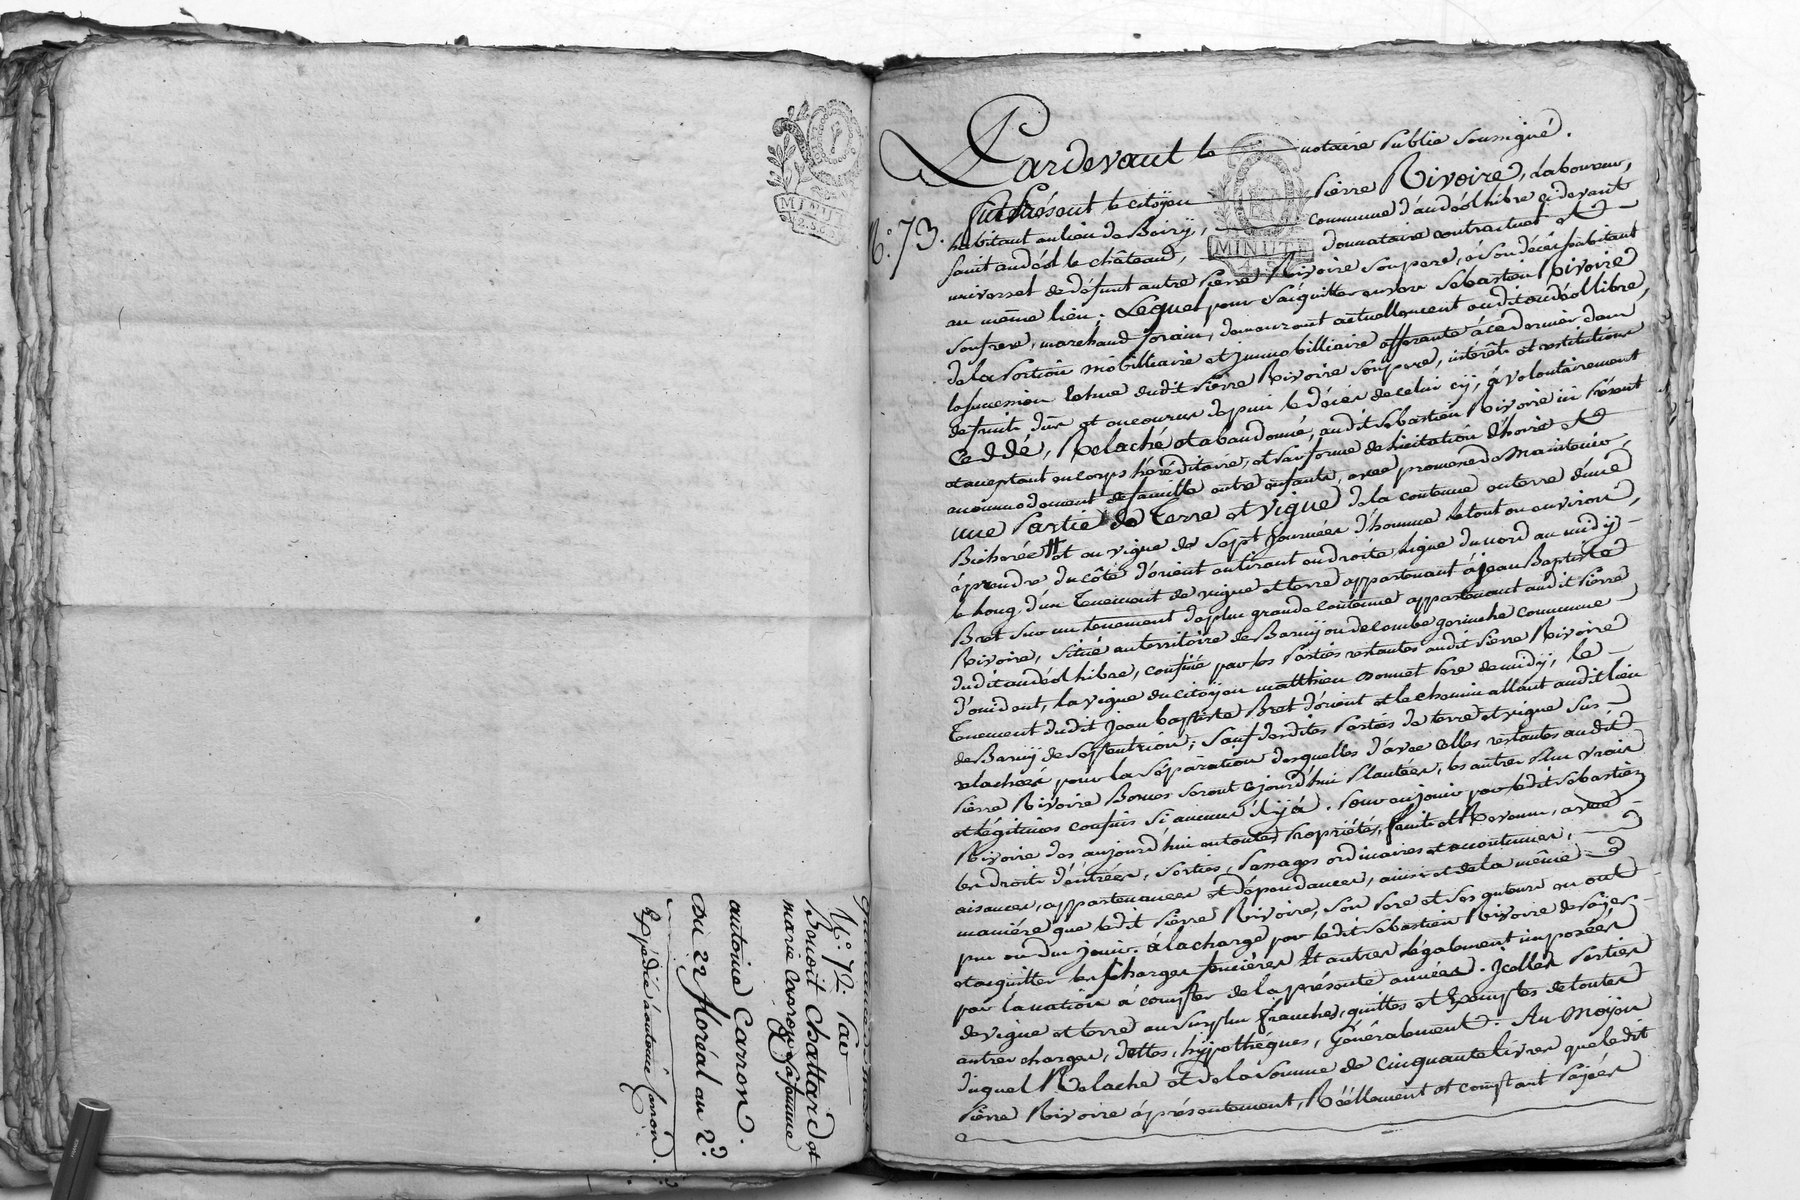 N.° 72. Par
Benoit Chattard et
marie Carron sa femme
à
antoine Carron.
Du 22 floréal an 2.d
Expédié à antoine Carron.
MINUTE
Pardevant le notaire public soussigné.
N.° 73.
fut Présent le citoÿen Pierre Rivoire, Laboureur,
MINUTE
habitant au lieu de Boirÿ, commune d'andéol libre cidevant
saint andéol le château, donnataire contractuel et
universel de défunt autre Pierre Rivoire son pere, à son décés habitant
au même lieu; Lequel pour s'aiquitter envers Sebastien Rivoire
son frere, marchand forain, demeurant actuellement audit andéol libre,
de la Portion mobilliaire et immobilliaire afférente à ce dernier dans
la succession échue dudit Pierre Rivoire son pere, intérêts et restitutions
de fruits dûs et encourus depuis le décés de celui cÿ, à volontairement
Ceddé, Relaché et abandonné, audit Sebastien Rivoire ici Présent
et acceptant en corps héréditaire, et par forme de licitation d'hoirie et
accommodement de famille entre enfants, avec promesse de Maintenir,
une Partie de Terre et vigne de la contenue en terre d'une
Bicherée et en vigne de sept Journées d'homme le tout ou environ,
à prendre du côté d'orient en tirant en droite ligne du nord au midÿ
le long d'un Tenement de vigne et terre appartenant à jean Baptiste
Bret sur un tenement de plus grande contenue appartenant audit Pierre
Rivoire, situé au territoire de Barnÿ ou de combe commune
dudit andéol libre, confiné par les Parties restantes audit Pierre Rivoire
d'occident, la vigne du citoÿen matthieu Bonnet Pere de midÿ, le
Tenement dudit Jean baptiste Bret d'orient et le chemin allant audit lieu
de Barnÿ de septentrion; sauf desdites Parties de terre et vigne sus
relachées pour la séparation desquelles d'avec celles restantes audit
Pierre Rivoire Bornes seront cejourd'hui Plantées, les autres plus vrais
et légitimes confins si aucuns il ÿ à. Pour en jouir par ledit Sebastien
Rivoire des aujourd'hui en toutes Propriétés, fruits et Revenus, avec
les droits d'entrées, sorties, Passages ordinaires et accoutumés,
aisances, appartenances et dépendances, ainsi et de la même
manière que ledit Pierre Rivoire, son Pere et ses auteurs en ont
pu ou du jouir. à la charge par ledit Sebastien Rivoire de Païer
et aiquitter les charges foncières et autres légalement imposées
par la nation à compter de la présente année. Icelles Parties
de vigne et terre au surplus franches, quittes et Exemptes de toutes
autres charges, dettes, hÿpothéques, Généralement. Au Moÿen
duquel Relaché et de la somme de cinquante livres que ledit
Pierre Rivoire à présentement, Réellement et comptant Païées